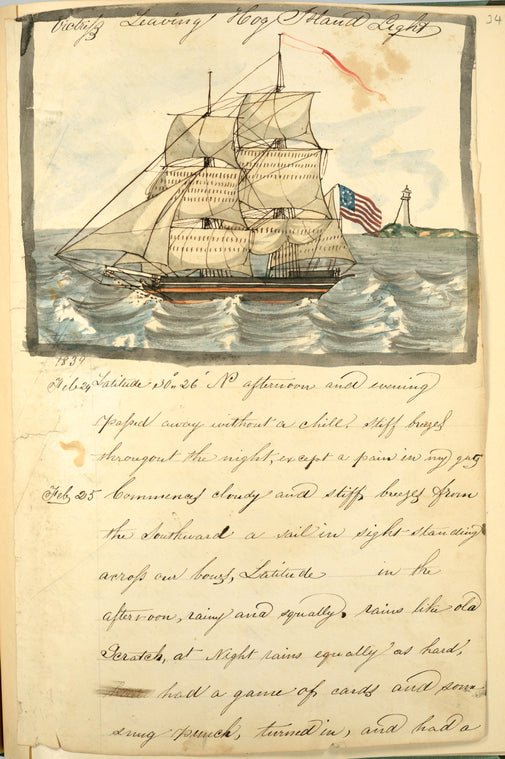 34
Leaving Hog Island Light
1839
Feb 24 Latitude 30" 26' N° afternoon and evening
passed away without a chill, stiff breezes
througout the night, except a pain in my guts
Feb, 25 Commences cloudy and stiff breezes from
the Southward a sail in sight standing
across our bows, Latitude in the
afternoon, rainy and squally, rains like old
Scratch, at Night rains equally as hard,
had a game of cards and some
snug punch, turned in, and had a